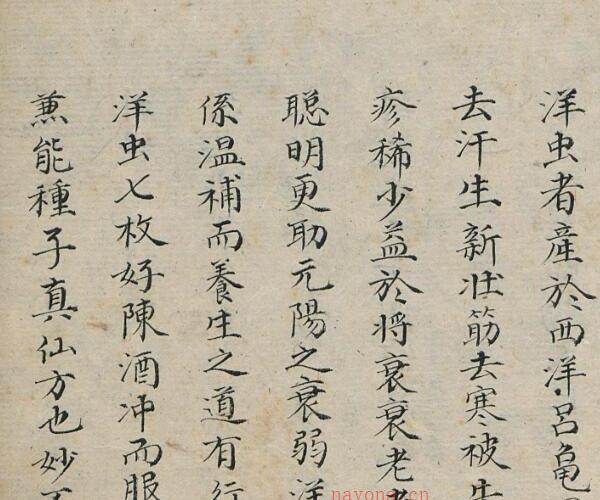 洋虫者產於西洋呂龟
去汗生新壮筋去寒被
疹稀少益於将衰衰老者
聪明更助元陽之衰弱洋
係温補而養生之道有行
洋虫七枚好陳酒冲而服
蕉能種子真仙方也妙
nayona.cn